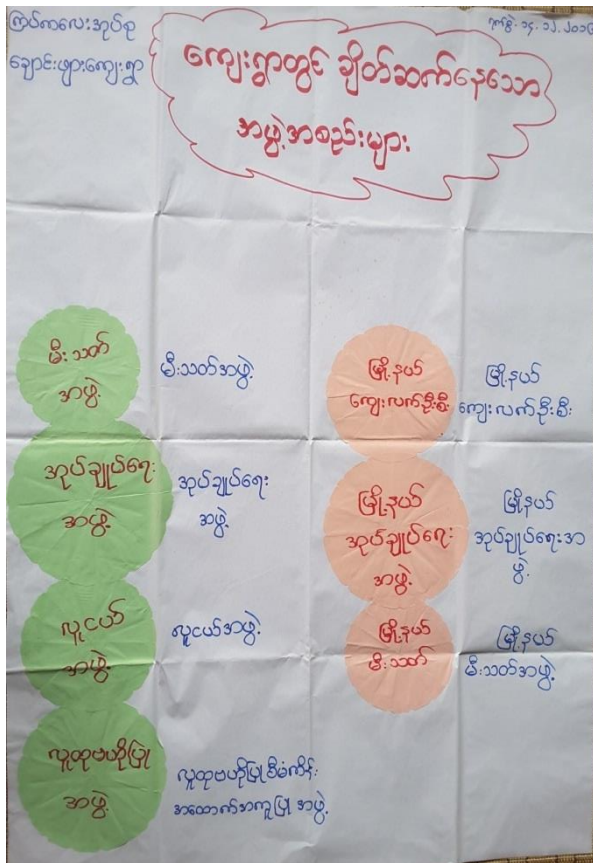 ကြပ်ကလေးအုပ်စု
ချောင်းဖျားကျေးရွာ
ကျေးရွာတွင် ချိတ်ဆက်နေသော
အဖွဲ့အစည်းများ
မီးသတ်
အဖွဲ့
မီးသတ်အဖွဲ့
အုပ်ချုပ်ရေး
အဖွဲ့
အုပ်ချုပ်ရေး
အဖွဲ့
လူငယ်
အဖွဲ့
လူငယ်အဖွဲ့
လူထုဗဟိုပြု
အဖွဲ့
လူထုဗဟိုပြုစီမံကိန်း
အထောက်အကူပြု အဖွဲ့
မြို့နယ်
ကျေးလက်ဦးစီး
မြို့နယ်
ကျေးလက်ဦးစီး
မြို့နယ်
အုပ်ချုပ်ရေး
အဖွဲ့
မြို့နယ်
အုပ်ချုပ်ရေးအ
ဖွဲ့
မြို့နယ်
မီးသတ်
မြို့နယ်
မီးသတ်အဖွဲ့